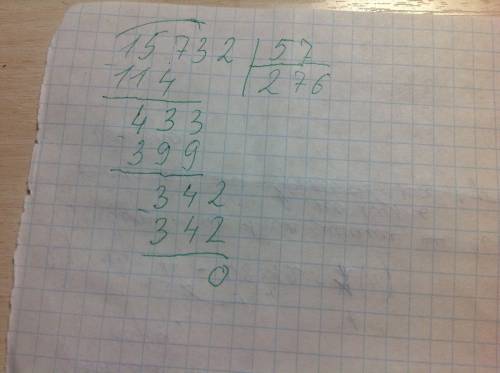 15732 57
114 276
433
399
342
342
0